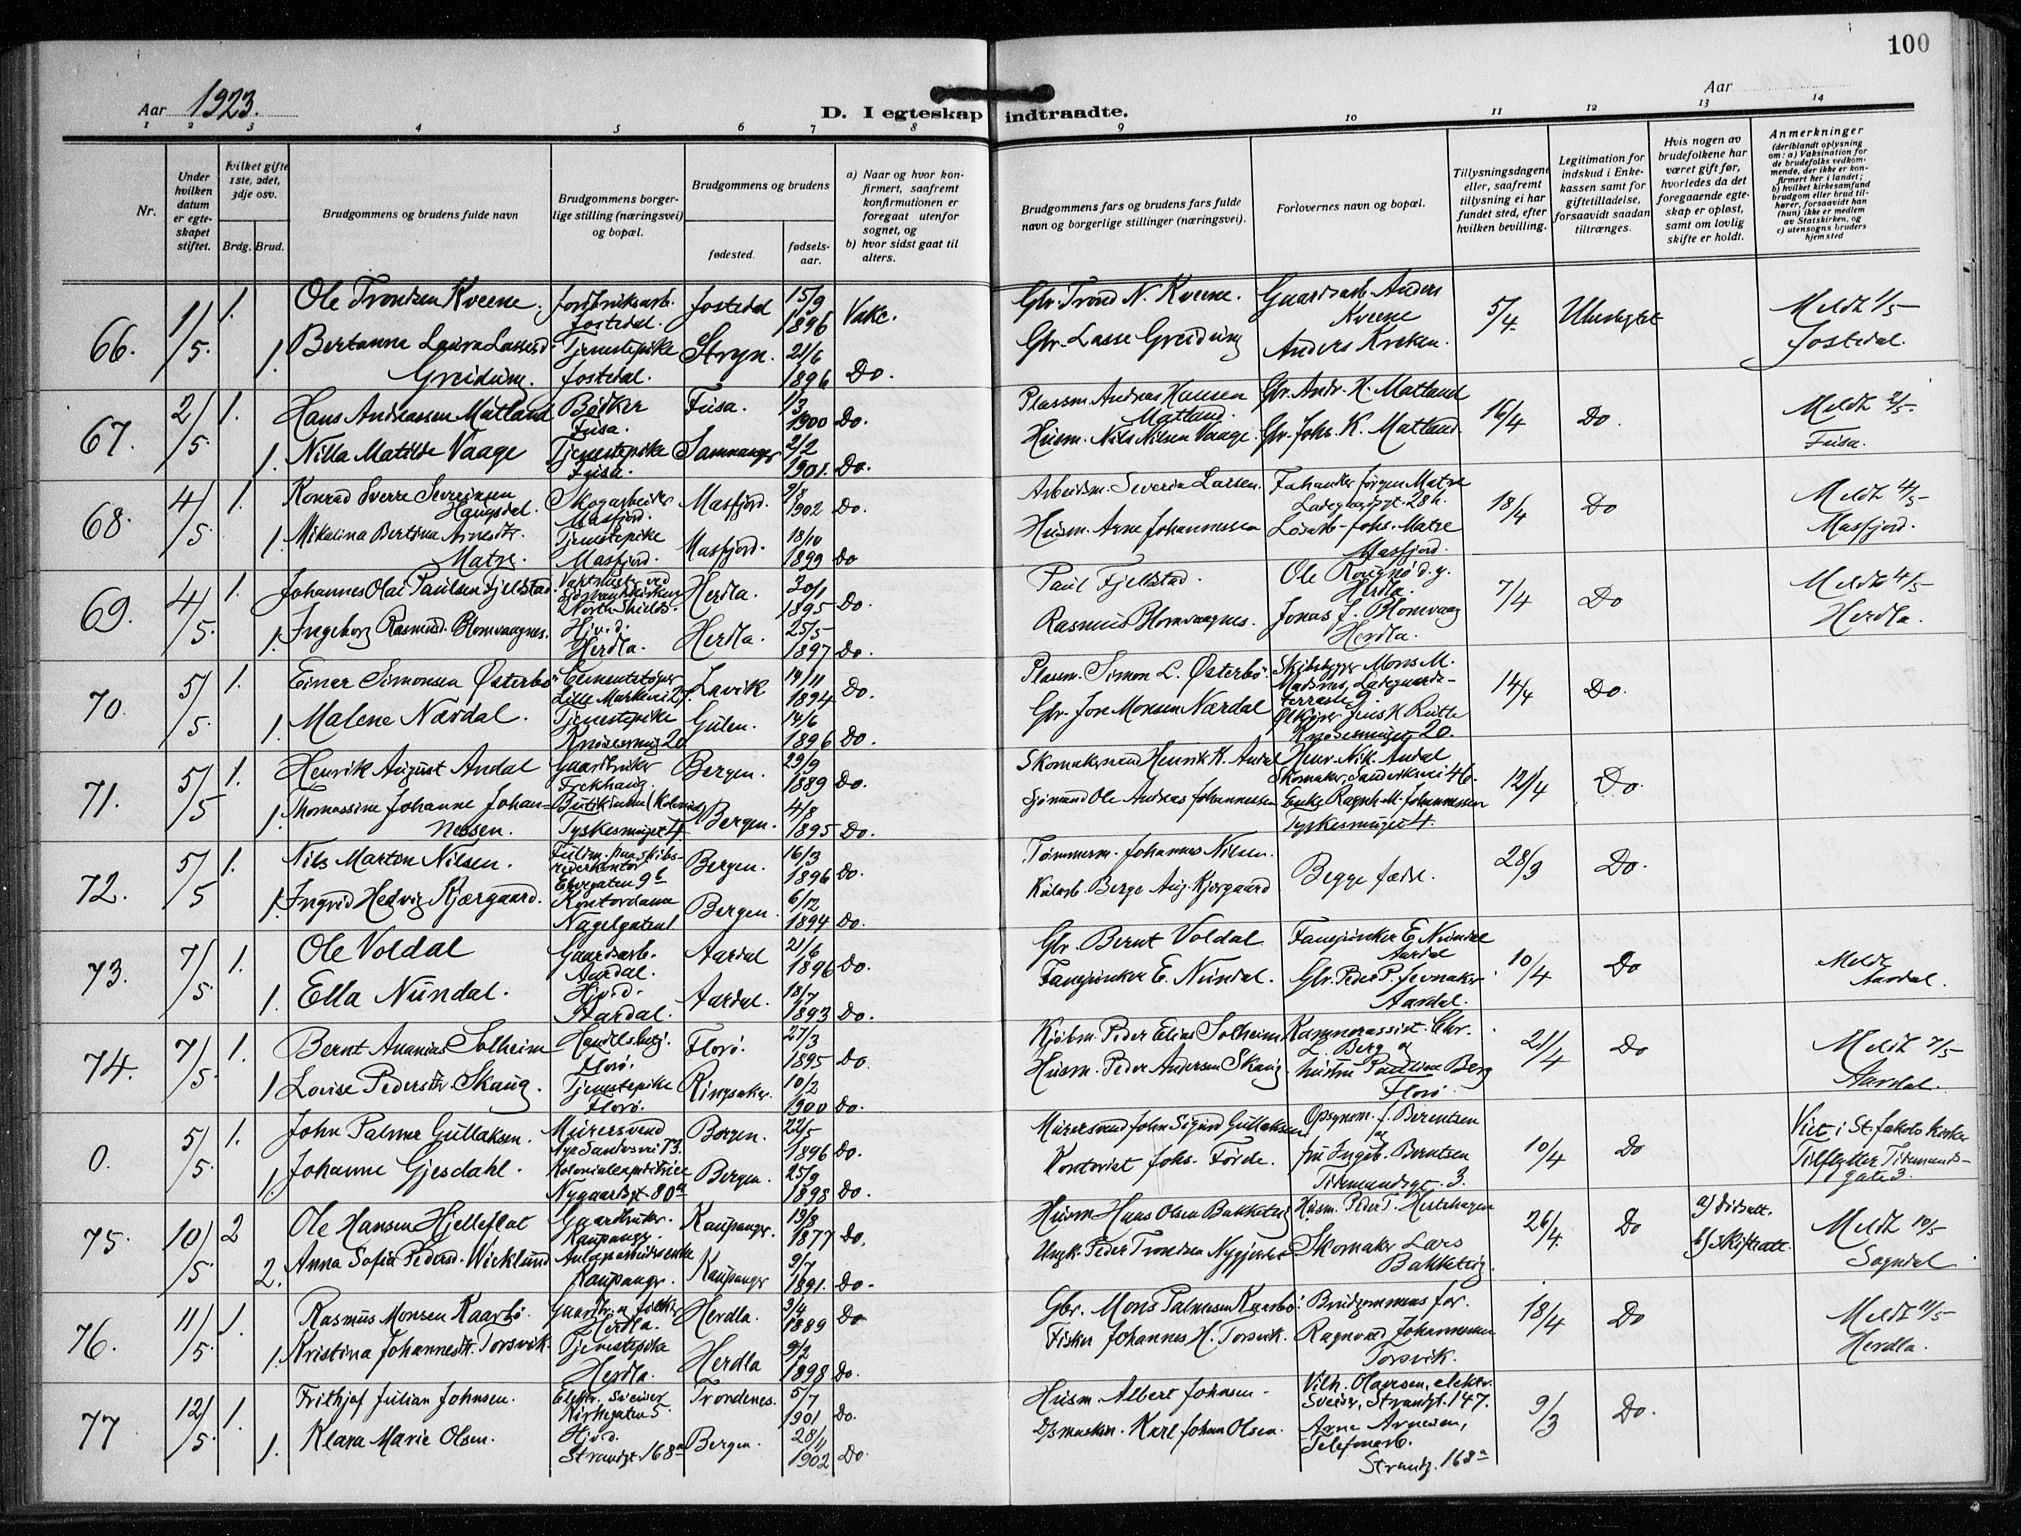 100
Aar 1923.
D. I egteskap indtraadte.
Aar
1 2 3 4 5 6 7 8 9 10 11 12 13 14
Nr.
Under hvilken datum er egteskapet stiftet.
hvilket gifte 1ste, 2det, 3dje osv.
Brdg. Brud.
Brudgommens og brudens fulde navn
Brudgommens borgerlige stilling (næringsvei) og bopæl.
Brudgommens og brudens
fødested. fødselsaar.
a) Naar og hvor konfirmert, saafremt konfirmationen er foregaat utenfor sognet, og
b) hvor sidst gaat til alters.
Brudgommens fars og brudens fars fulde navn og borgerlige stillinger (næringsvei).
Forlovernes navn og bopæl.
Tillysningsdagene eller, saafremt tillysning ei har fundet sted, efter hvilken bevilling.
Legitimation for indskud i Enkekassen samt for giftetilladelse, forsaavidt saadan tiltrænges.
Hvis nogen av brudefolkene har været gift før, hvorledes da det foregaaende egteskap er opløst, samt om lovlig skifte er holdt.
Anmerkninger (deriblandt oplysning om: a) Vaksination for de brudefolks vedkommende, der ikke er konfirmert her i landet; b) hvilket kirkesamfund brudgom eller brud tilhører, forsaavidt han (hun) ikke er medlem av Statskirken, og c) utensogns bruders hjemsted
66. 1/5 1. Ole Trondsen Kveene. Jordbruksarb. Jostedal. Jostedal 15/9 1896 Vakc. Gbr. Trond N. Kveene. Gaardsarb. Anders Kveene 5/4. Meldt 1/5 Jostedal.
1. Bertanne Laura Lassesd. Greidung. Tjenestepike Jostedal. Stryn. 21/6 1896 Do. Gbr. Lasse Greidung Anders Kreken.
67. 2/5 1. Hans Andreassen Matland Bødker Fusa. Fusa. 1/3 1900 Do. Plassm. Andreas Hansen Matland. Gbr. Andr. H. Matland 16/4 Do. Meldt 2/5. Fusa.
1. Nilla Matilde Vaage Tjenestepike Fusa. Samnanger 2/2 1901. Do. Husm. Nils Nilsen Vaage. Gbr. Johs. K. Matland.
68. 4/5 1. Konrad Sverre Severinsen Haugsdal. Skogarbeider Masfjord. Masfjord. 9/8 1902 Do. Arbeidsm. Severin Larsen. Jørgen Matre 28 h. 18/4 Do Meldt 4/5 Masfjord.
1. Mikalina Bertina Arnesdtr. Matre. Tjenestepike Masfjord. Masfjord. 18/10 1899 Do Husm. Arne Johannessen Løsarb. Johs. Matre Masfjord.
69. 4/5 1. Johannes Olai Paulsen Fjeldstad. North Shields. Herdla. 30/1 1895 Do. Paul Fjellstad. Ole Herdla. 7/4 Do Meldt 4/5 Herdla.
1. Ingeborg Rasmusd. Blomvaagnes. Hjvd. Herdla. Herdla. 25/5 1897 Do. Rasmus Blomvaagnes. Jonas J. Blomvaag Herdla.
70. 5/5 1. Einar Simonsen Østerbø. Cementstøper Lille Markevei 21. Lavik 19/11 1894 Do. Plassm. Simon L. Østerbø. Skibsbygger Mons M. Madsnes, Ladegaardsterrasse 9. 14/4 Do.
1. Malene Nærdal. Tjenestepike Knøsesmug 20 Gulen. 14/6 1896 Do. Gbr. Jon Monsen Nærdal Ølkjører Jens K. Rutle Knøsesmuget 20.
71. 5/5 1. Henrik August Andal Gaardbruker Frekhaug Bergen. 29/9 1889 Do. Skomakersvend Henrik K. Andal Henr. Nik. Andal Skomaker, Sandviksvei 46. 12/4 Do.
1. Thomassine Johanne Johannessen. Tyskesmuget 4 Bergen. 4/8 1895 Do. Sjømand Ole Andreas Johannessen Enke Ragnh. M. Johannessen Tyskesmuget 4.
72. 5/5 1. Nils Marton Nilsen. Fuldm. paa skibsrederkontor Bergen. 16/3 1896 Do. Tømmerm. Johannes Nilsen. Begge fædre. 28/3 Do.
1. Ingvid Hedvig Kjærgaard. Kontordame Nagelgaten 1 Bergen. 6/12 1894 Do. Berge Aug. Kjærgaard
73. 7/5 1. Ole Voldal Gaardsarb. Aardal. Aardal 21/6 1896 Do. Gbr. Bernt Voldal Fanejunker E. Nundal Aardal 10/4 Do Meldt Aardal.
1. Ella Nundal. Hjvd. Aardal. Aardal. 18/7 1893 Do. Fanejunker E. Nundal. Gbr. Peder P. Aardal.
74. 7/5 1. Bernt Ananias Solheim Handelsbetj. Florø. Florø. 27/3 1895 Do. Kjøbm. Peder Elias Solheim Kæmnerassist. Chr. L. Berg og 21/4 Do Meldt 7/5 Aardal.
1. Lovise Pedersdtr. Skaug. Tjenestepike Florø. Ringsaker. 10/2 1900 Do. Husm. Peder Andersen Skaug hustru Pauline Berg Florø
0. 5/5 1. John Palmer Gullaksen. Murersvend Nye Sandvsvei 73. Bergen. 22/5 1896 Do. Murersvend John Sigurd Gullaksen Opsynsm. J. Berentsen og 10/4 Do Viet i St. Jakobs kirke
1. Johanne Gjesdahl. Kolonialexpeditrice Nygaardsgt. 80a Bergen. 25/9 1898 Do. Kontorist Johs. Førde. fru Ingeb. Berntsen Tidemandsgt. 3. Tilflytter Tidemandsgate 3.
75. 10/5 2 Ole Hansen Hjelleflat Gaardbruker. Kaupanger. Kaupanger. 13/3 1877 Do. Husm Hans Olsen Bakketeig Husm. Peder T. Hestehagen 26/4. Do b) skifteatt. Meldt 10/5 Sogndal
2. Anna Sofia Pedersd. Wicklund Kaupanger. Kaupanger 9/7 1891. Do. Ungk. Peder Trondsen Skomaker Lars Bakketeig.
76. 11/5 1. Rasmus Monsen Kaarbø. Gaardbr. og fisker Herdla. Herdla. 3/4 1889 Do Gbr. Mons Palmesen Kaarbø. Brudgommens far. 18/4 Do Meldt 11/5 Herdla.
1. Kristina Johannesdtr. Torsvik. Tjenestepike Herdla. Herdla 9/2 1898 Do. Fisker Johannes H. Torsvik. Ragnvald Johannessen Torsvik.
77. 12/5 1. Frithjof Julian Johnsen. Elektr. sveiser Kirkegaten 5. Trondenes. 5/7 1901 Do. Husm Albert Johnsen. Vilh. Olavesen, elektr. Sveiser, Strandgt. 147. 9/3 Do.
1. Klara Marie Olsen. Hjvd. Strandgt. 168a Bergen. 28/11 1902 Do. D/s maskin. Karl Johan Olsen. Arne Arnesen, Telefonarb. Strandg. 168a